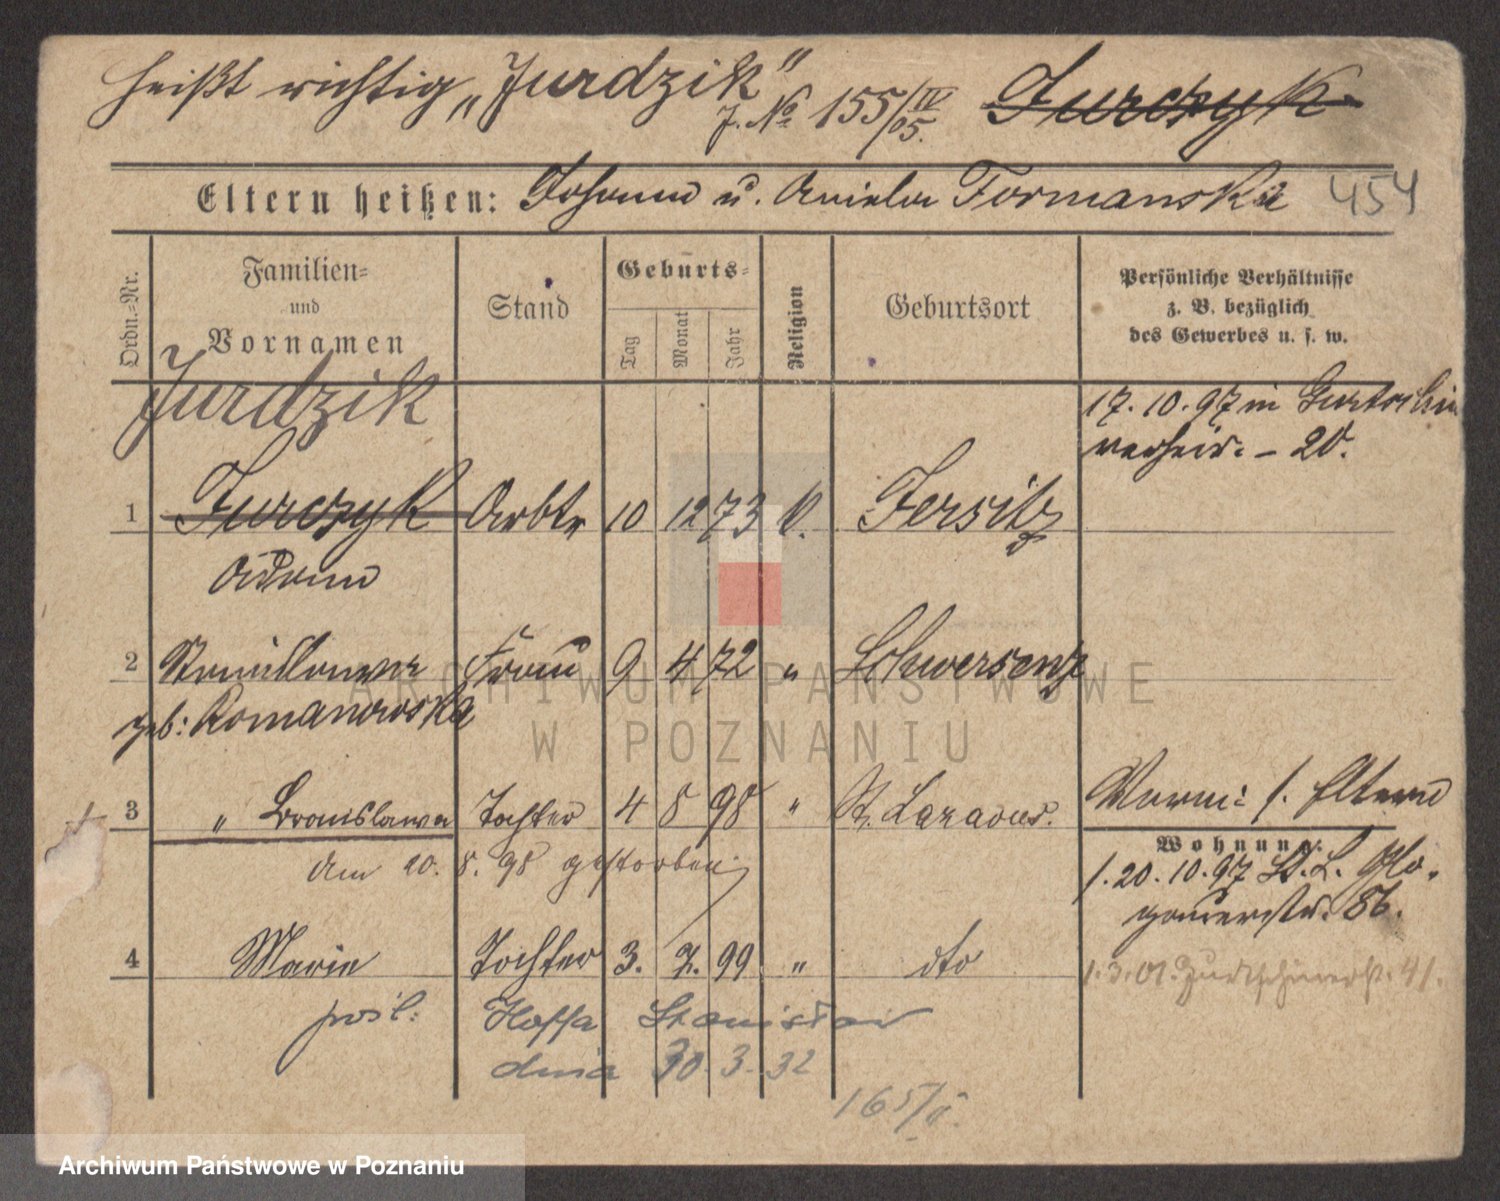 heißt richtig „Jurdzik"
J. № 155/IV 05. Jurczyk
Eltern heißen: Johann u. Aniela Formanska 454
Ordn.-Nr.
Familien-
und
Vornamen
Stand
Geburts-
Tag
Monat
Jahr
Religion
Geburtsort
Persönliche Verhältnisse
z. B. bezüglich
des Gewerbes u. s. w.
Jurdzik
17. 10. 97 in
verheir. – 20.
1 Jurczyk Arbtr 10 12 73 k. Jersitz
Adam
2 Stanislawa Frau 9 4 72 " Schwersenz
geb: Romanowska
3 " Bronislawa Tochter 4 8 98 " St. Lazarus.
am 20. 8. 98 gestorben
Vorm: s. Eltern
Wohnung:
1. 20. 10. 97 St. L. Glo-
gauerstr. 86.
4 Marie Tochter 3. 7. 99 " dto
1. 3. 01. 41.
pośl: Hoffa Stanisław
dnia 30. 3. 32
165/
ARCHIWUM PAŃSTWOWE
W POZNANIU
Archiwum Państwowe w Poznaniu